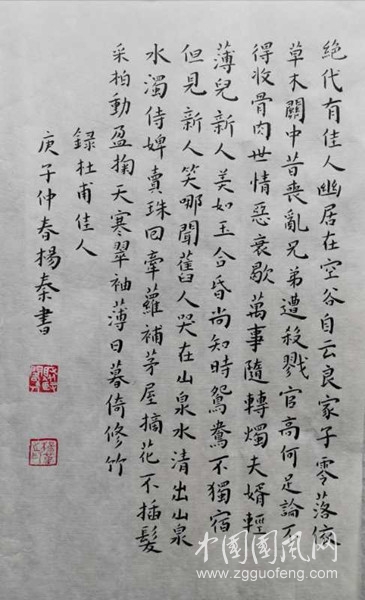 絶代有佳人幽居在空谷自云良家子零落依
草木關中昔喪亂兄弟遭殺戮官高何足論不
得收骨肉世情惡衰歇萬事隨轉燭夫婿輕
薄兒新人美如玉合昏尚知時鴛鴦不獨宿
但見新人笑哪聞舊人哭在山泉水清出山泉
水濁侍婢賣珠回牽蘿補茅屋摘花不插髮
采柏動盈掬天寒翠袖薄日暮倚修竹
録杜甫佳人
庚子仲春楊秦書
中国国风网
www.zgguofeng.com